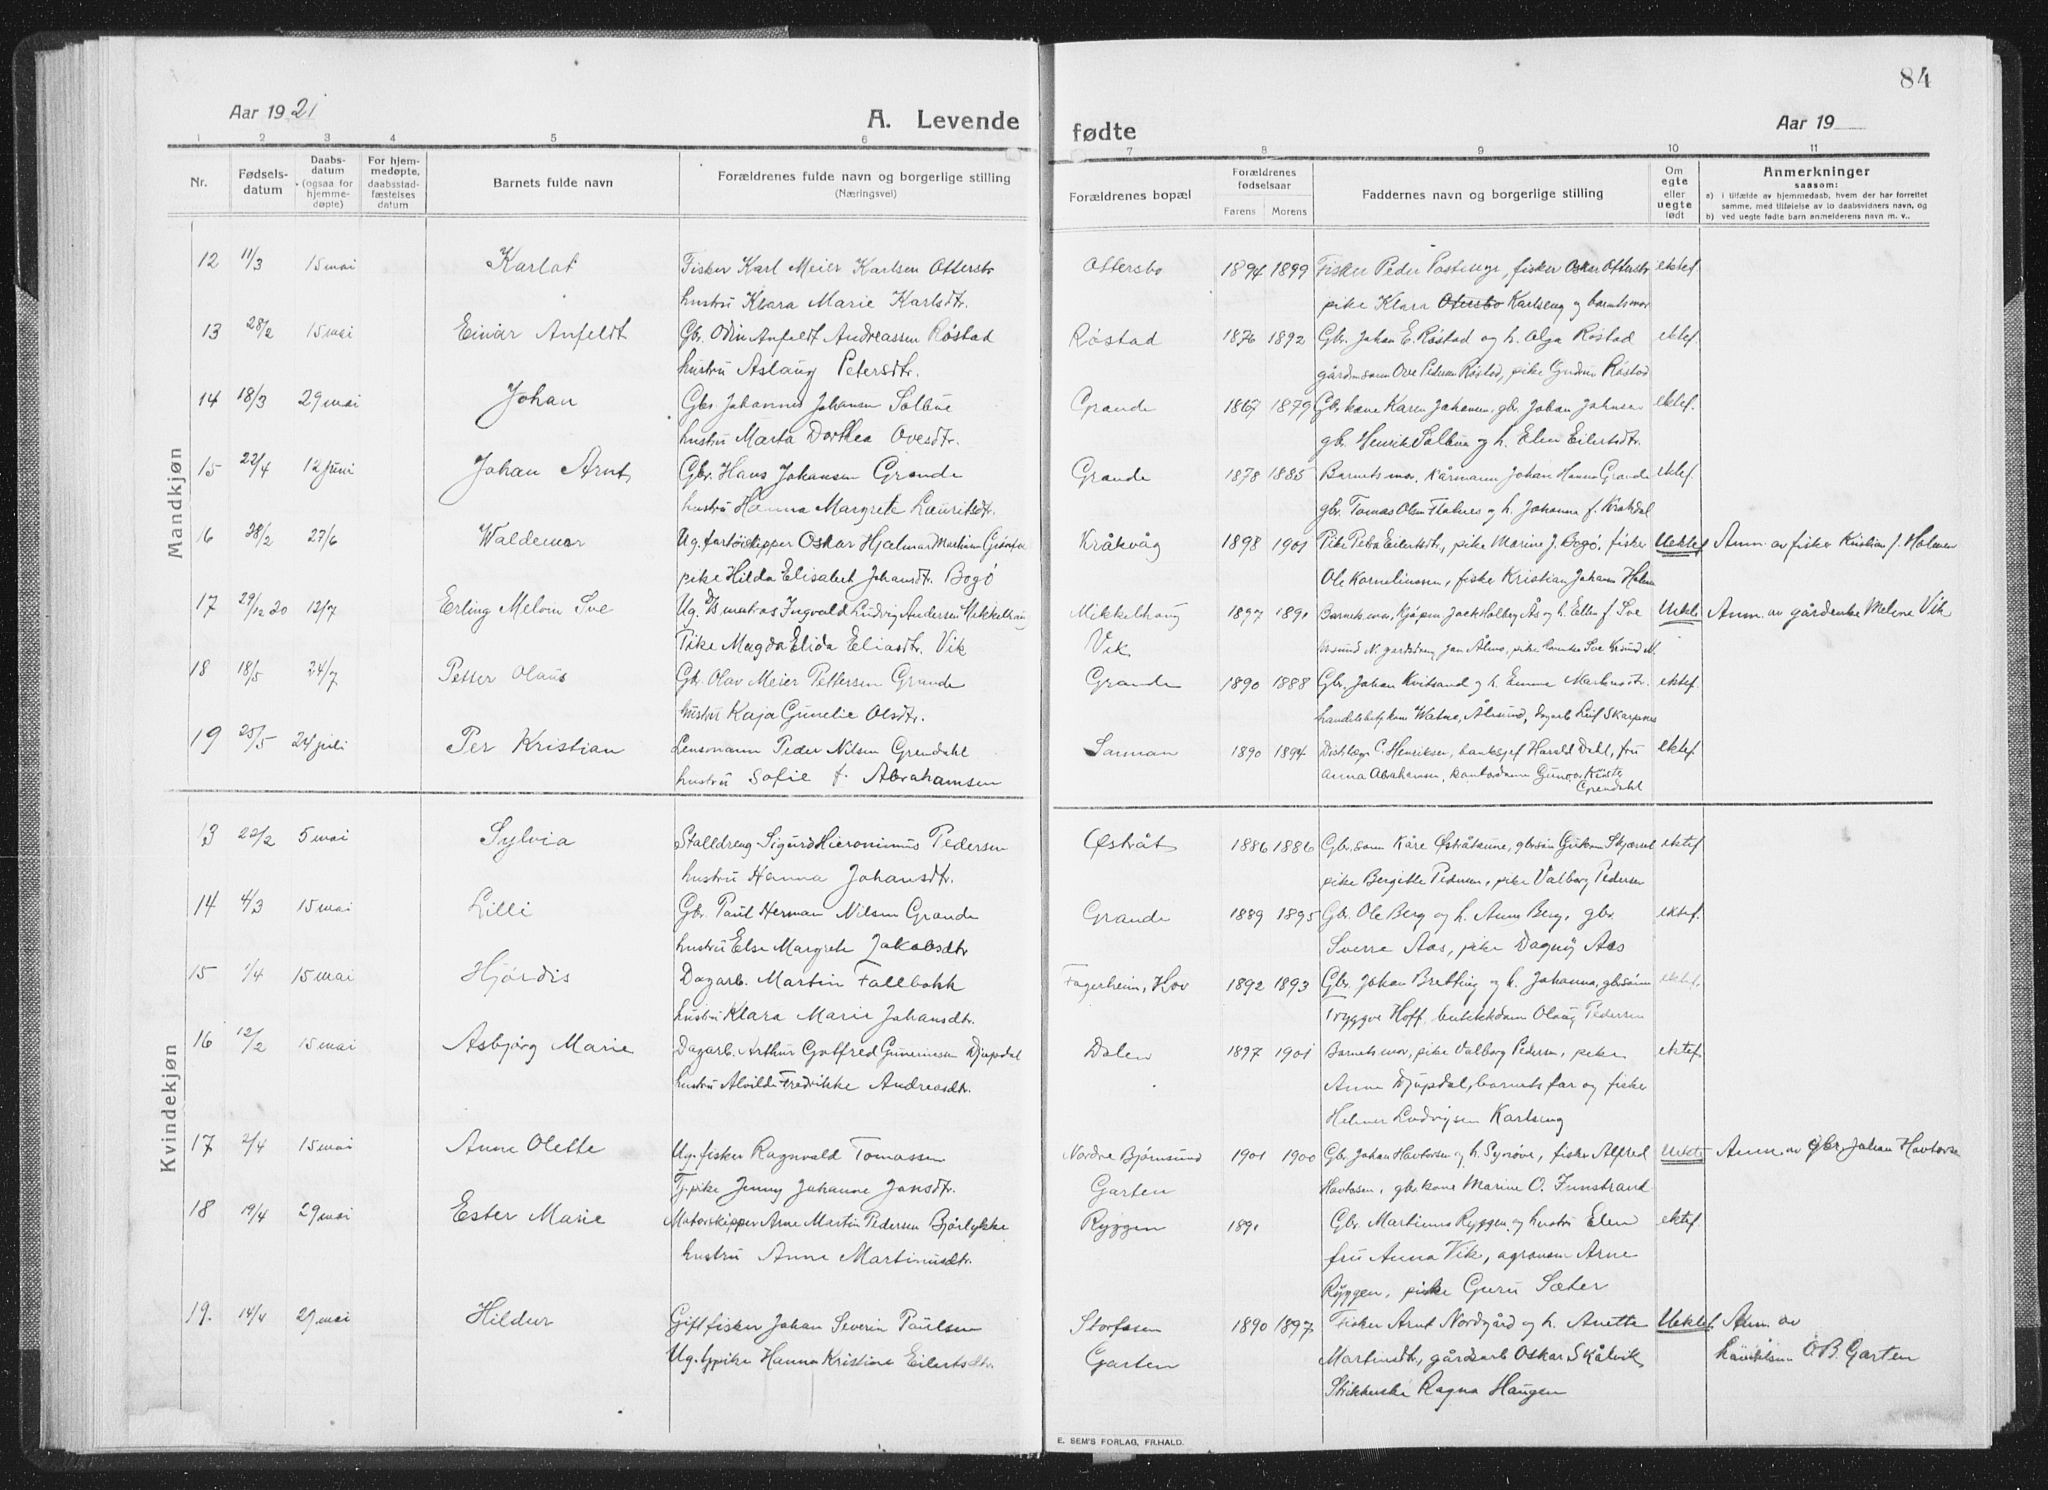 84
Aar 1921
A. Levende
fødte
Aar 19
1 2 3 4 5 6 7 8 9 10 11
Nr.
Fødsels-
datum
Daabs-
datum
(ogsaa for
hjemme-
døpte)
For hjem-
medøpte,
daabsstad-
fæstelses
datum
Barnets fulde navn
Forældrenes fulde navn og borgerlige stilling
(Næringsvei)
Forældrenes bopæl
Forældrenes
fødselsaar
Farens Morens
Faddernes navn og borgerlige stilling
Om
egte
eller
uegte
født
Anmerkninger
saasom:
a) i tilfælde av hjemmedaab, hvem der har forrettet
samme, med tilføielse av to daabsvidners navn, og
b) ved uegte fødte barn anmelderens navn m. v..
Mandkjøn
12 11/3 15 mai Karlot Fisker Karl Meier Karlsen Ottersbo Ottersbo 1894 1899 Fisker Peder, fisker Oskar Ottersbo ektef.
hustru Klara Marie Karlsdtr. pike Klara Ottersbo Karlseng og barnets mor
13 28/2 15 mai Einar Anfeldt Gbr. Odin Anfeldt Andreassen Røstad Røstad 1876 1892 Gbr. Johan E. Røstad og h. Olga Røstad ektef.
hustru Aslaug Petersdtr. gårdm.sønn Ove Pedersen Røstad, pike Gudrun Røstad
14 18/3 29 mai Johan Gbr. Johannes Johansen Solbue Grande 1867 1879 Gbr.kone Karen Johansen, gbr. Johan Johnsen ektef.
hustru Marta Dorthea Ovesdtr. gbr. Henrik Solbue og h. Elen Eilertsdtr.
15 22/4 12 juni Johan Arnt Gbr. Hans Johansen Grande Grande 1878 1885 Barnets mor, Kårmann Johan Hansen Grande ektef.
hustru Hanna Margrete Lauritsdtr. gbr. Tomas Olsen Flatnes og h. Johanna f. Krakdal
16 28/2 27/6 Waldemar Ug. fartøiskipper Oskar Hjalmar Martinus Kråkvåg 1898 1901 Pike Petra Eilertsdtr, pike Marine J. Bogø, fisker Uektef Anm. av fisker Kristian J. Holmen
pike Hilda Elisabet Johansdtr. Bogø Ole Korneliussen, fisker Kristian Johansen Holmen
17 29/12 20 12/7 Erling Melvin Sve Ug. D/S matros Ingvald Ludvig Andersen Mikkelhaug Mikkelhaug 1897 1891 Barnets mor, Kjøpm Jack Holberg Ås og h. Ellen f. Sve Uekte Anm. av gårdenke Melene Vik
Pike Magda Elida Eliasdtr. Vik Vik
18 18/5 24/7 Petter Olaus Gbr. Olav Meier Pettersen Grande Grande 1890 1888 Gbr. Johan Kvitsand og h. Emma Martinusdtr. ektef.
hustru Kaja Gunelie Olsdtr. handelsbetj. Watne, Ålesund, dagarb. Leif Skarpnes
19 25/5 24 juli Per Kristian Lensmann Peder Nilsen Grendahl 1890 1894 Distr.læge C. Henriksen, banksjef Harald Dahl, fru ektef.
hustru Sofie f. Abrahamsen Anna Abrahamsen, kontordame Gunvor Kristine
Grendahl
Kvindekjøn
13 22/2 5 mai Sylvia Stalldreng Sigurd Hieronimus Pedersen Østråt 1886 1886 Gbr.sønn Kåre Østråtaune, gbr.søn ektef
hustru Hanna Johansdtr. pike Bergitte Pedersen, pike Valborg Pedersen
14 4/3 15 mai Lilli Gbr. Paul Herman Nilsen Grande Grande 1889 1895 Gbr. Ole Berg og h. Anne Berg, gbr. ektef.
hustru Else Margrete Jakobsdtr Sverre Aas, pike Dagny Aas
15 1/4 15 mai Hjørdis Dagarb. Martin Fallbakk Fagerheim, Hov 1892 1893 Gbr. Johan Bretting og h. Johanna, gbrsønn ektef.
hustru Klara Marie Johansdtr. Tryggve Hoff, butikkdam Olaug Pedersen
16 12/2 15 mai Asbjørg Marie Dagarb. Arthur Gotfred Gunerinssen Djupdal Dalen 1897 1901 Barnets mor, pike Valborg Pedersen, piken ektef
hustru Alvilde Fredrikke Andreasdtr. Anne Djupdal, barnets far og fisker
Helmer Ludvigsen Karlseng
17 2/4 15 mai Anne Olette Ug. fisker Ragnvald Tomassen Nordre Bjørnsund 1901 1900 Gbr. Johan Havtorsen og h. Synøve, fisker Alfred Uekte Anm. av gbr. Johan Havtorsen
Tj. pike Jenny Johanne Jansdtr. Garten Havtorsen, gbr.kone Marine O. Innstrand
18 19/4 29 mai Ester Marie Motorskipper Arne Martin Pedersen Bjørlykke Ryggen 1891 Gbr. Martinus Ryggen og hustru Elen ektef
hustru Anne Martinusdtr. fru Anna Vik, agronom Arne
Ryggen, pike Guru Sæter
19. 14/4 29 mai Hildur Gift fisker Johan Severin Paulsen Storfosen 1890 1897 Fisker Arnt Nordgård og h. Anette Uektef Anm. av
Ug. tj.pike Hanna Kristine Eilertsdtr. Garten Martinsdtr, gårdsarb Oskar Skålvik O. B. Garten
Ragna Haugen
E. SEM'S FORLAG, FR.HALD.